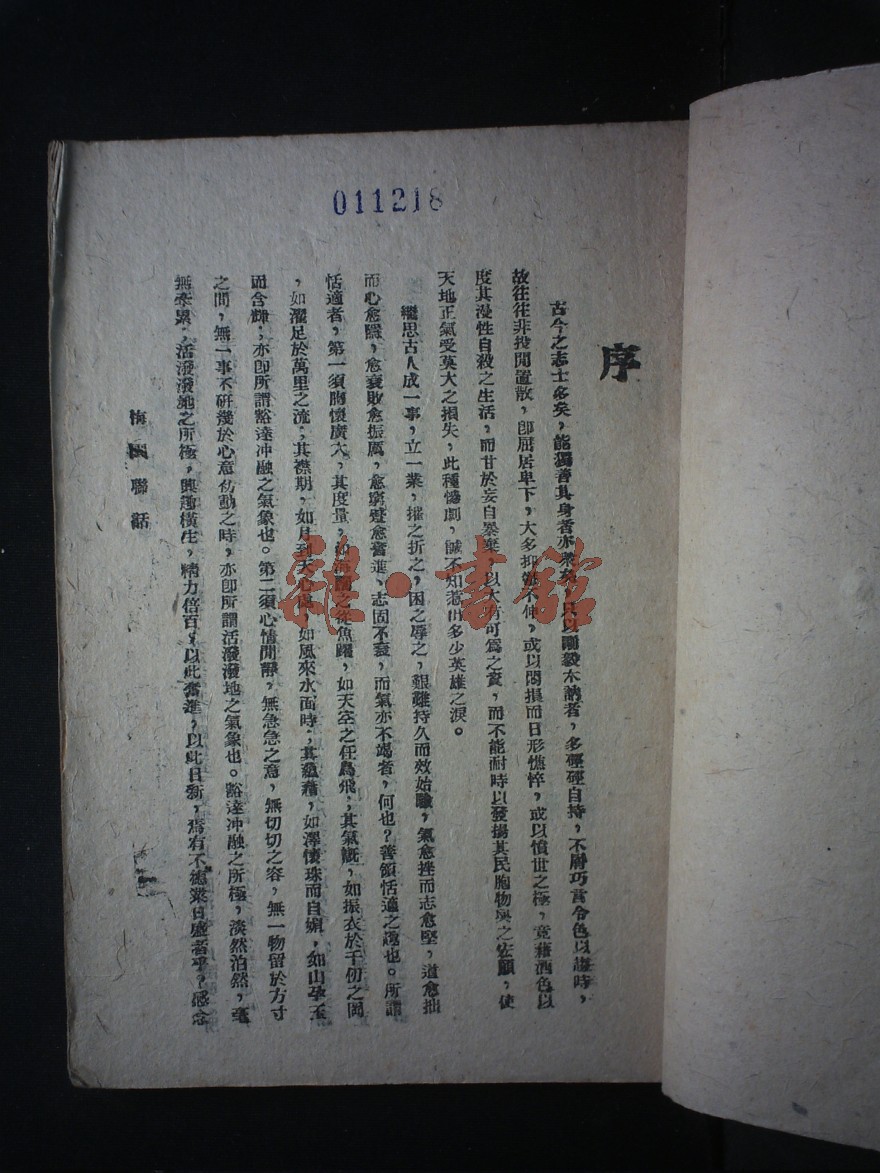 011218
序
古今之志士多矣，能獨善其身者亦衆矣，只以剛毅木訥者，多硜硜自持，不屑巧言令色以趨時，
故往往非投閒置散，卽屈居卑下，大多抑鬱不伸，或以悶損而日形憔悴，或以憤世之極，竟藉酒色以
度其漫性自殺之生活，而甘於妄自暴棄，以大有可爲之資，而不能耐時以發揚其民胞物與之宏願，使
天地正氣受莫大之損失，此種慘劇，誠不知惹出多少英雄之淚。
緬思古人成一事，立一業，摧之折之，困之辱之，艱難持久而效始驗，氣愈挫而志愈堅，道愈拙
而心愈闢，愈衰敗愈振厲，愈窮蹙愈奮進，志固不衰，而氣亦不竭者，何也？善領恬適之趣也。所謂
恬適者，第一須胸懷廣大，其度量，如海闊之從魚躍，如天空之任鳥飛；其氣概，如振衣於千仞之岡
，如濯足於萬里之流；其襟期，如月到天心處，如風來水面時；其蘊藉，如澤懷珠而自媚，如山孕玉
而含輝；亦卽所謂豁達冲融之氣象也。第二須心情閒靜，無急急之意，無切切之容，無一物留於方寸
之間，無一事不研幾於心意仿動之時，亦卽所謂活潑潑地之氣象也。豁達冲融之所極，淡然泊然，毫
無牽累；活潑潑地之所極，興趣橫生，精力倍百，以此奮進，以此日新，焉有不德業日盛者乎？感念
梅 聯話
雜·書館